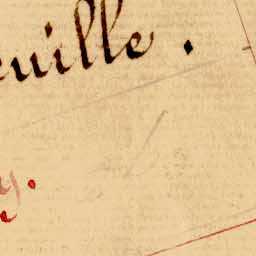 euille.
y.